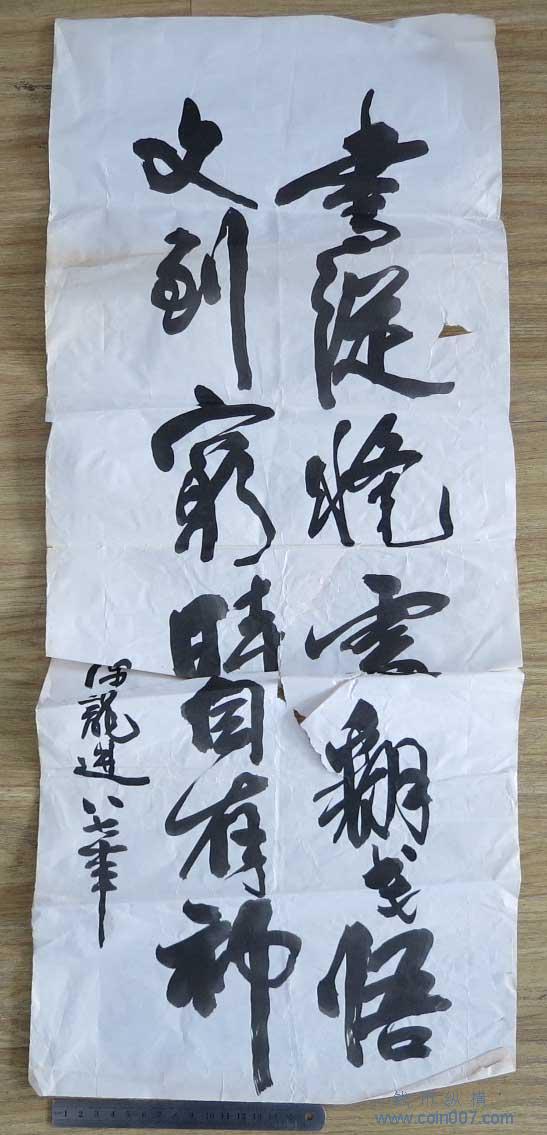 書從疑處翻成悟
文到窮時自有神
龍進八七年
1 2 3 4 5 6 7 8 9 10 11 12 13 14
钱币纵横
www.coin007.com